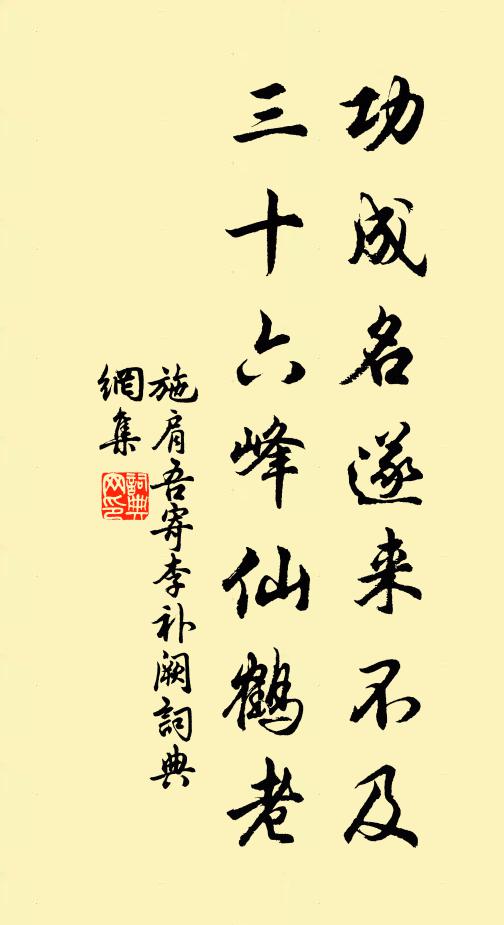 功成名遂来不及
三十六峰仙鹤老
施肩吾寄李补阙詞典
網集
詞典
网印